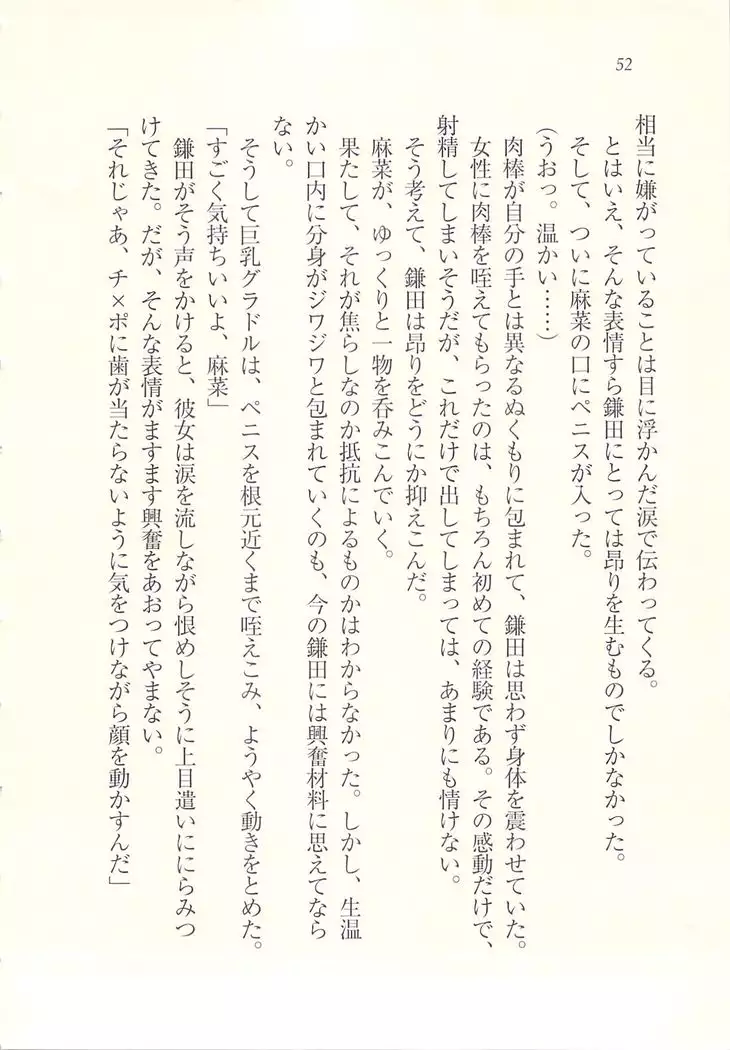 52
相当に嫌がっていることは目に浮かんだ涙で伝わってくる。
とはいえ、そんな表情すら鎌田にとっては昂りを生むものでしかなかった。
そして、ついに麻菜の口にペニスが入った。
(うおっ。温かい……)
肉棒が自分の手とは異なるぬくもりに包まれて、鎌田は思わず身体を震わせていた。
女性に肉棒を咥えてもらったのは、もちろん初めての経験である。その感動だけで、
射精してしまいそうだが、これだけで出してしまっては、あまりにも情けない。
そう考えて、鎌田は昂りをどうにか抑えこんだ。
麻菜が、ゆっくりと一物を呑みこんでいく。
果たして、それが焦らしなのか抵抗によるものかはわからなかった。しかし、生温
かい口内に分身がジワジワと包まれていくのも、今の鎌田には興奮材料に思えてなら
ない。
そうして巨乳グラドルは、ペニスを根元近くまで咥えこみ、ようやく動きをとめた。
「すごく気持ちいいよ、麻菜」
鎌田がそう声をかけると、彼女は涙を流しながら恨めしそうに上目遣いににらみつ
けてきた。だが、そんな表情がますます興奮をあおってやまない。
「それじゃあ、チ×ポに歯が当たらないように気をつけながら顔を動かすんだ」